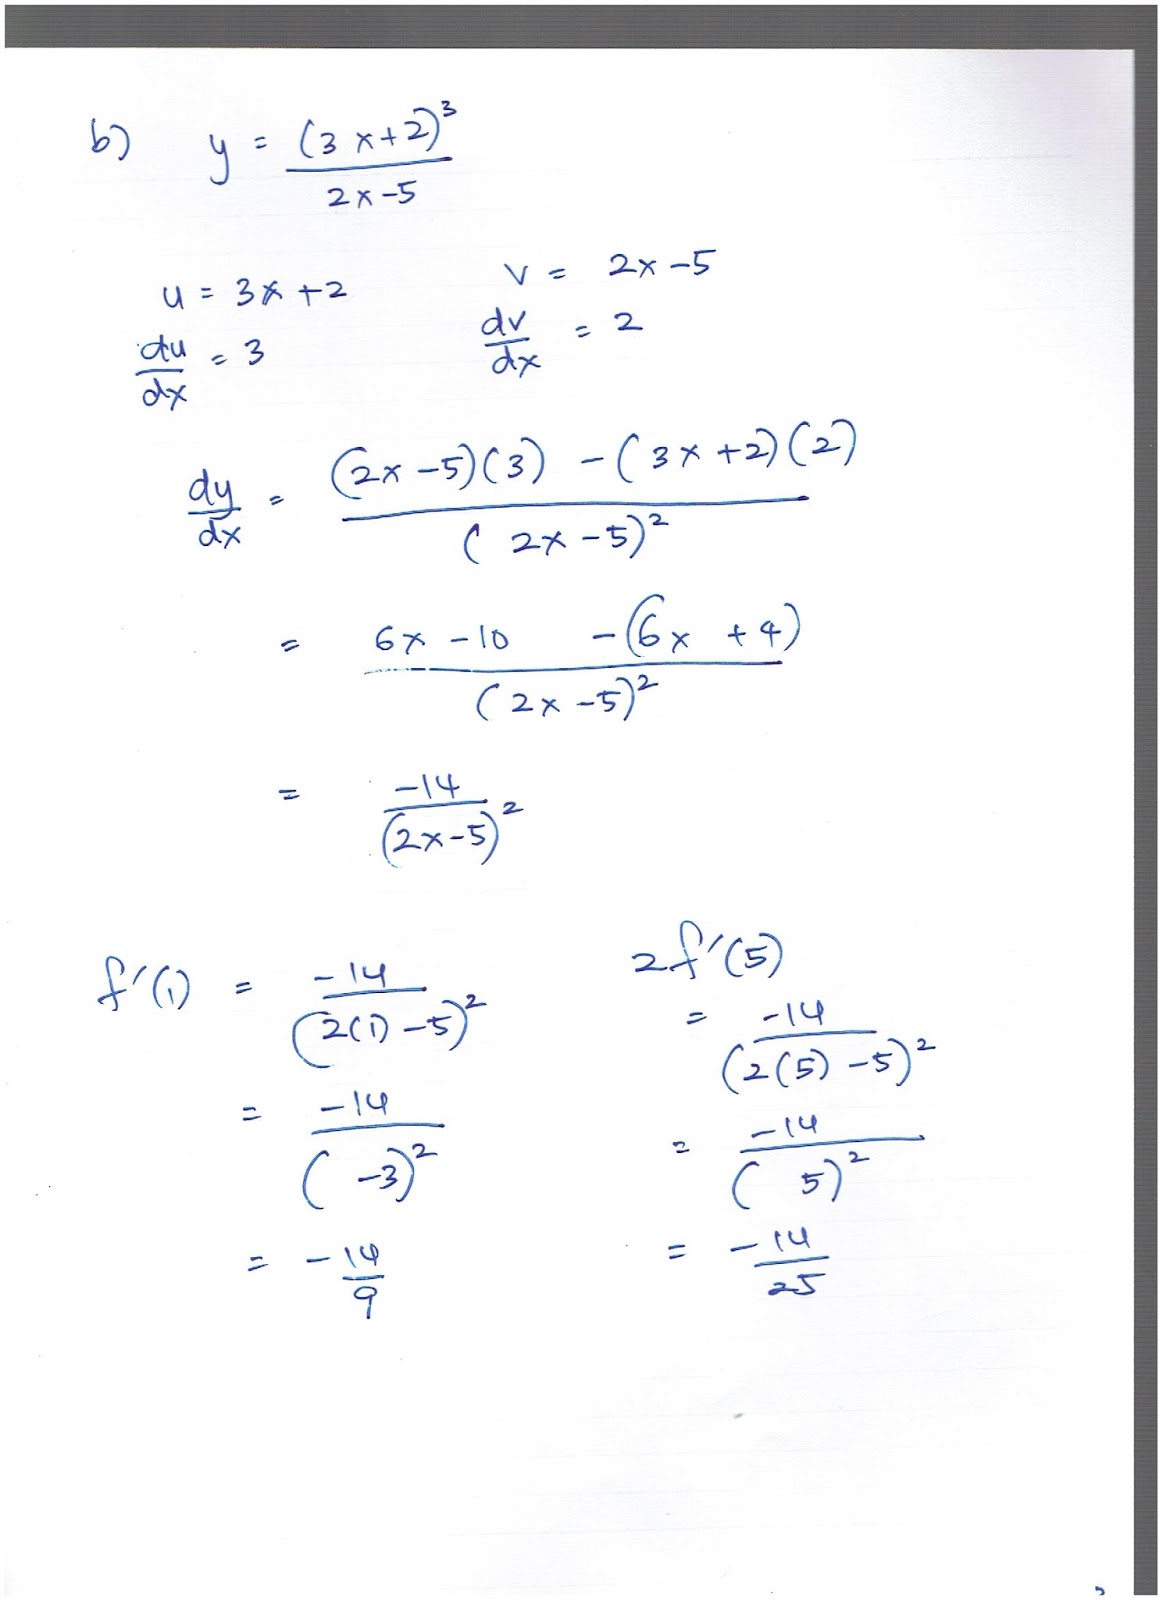 b) y = (3x+2)³ / 2x-5
u = 3x+2 v = 2x-5
du/dx = 3 dv/dx = 2
dy/dx = (2x-5)(3) - (3x+2)(2) / (2x-5)²
= 6x-10 -(6x+4) / (2x-5)²
= -14 / (2x-5)²
f′(1) = -14 / (2(1)-5)²
= -14 / (-3)²
= -14/9
2f′(5)
= -14 / (2(5)-5)²
= -14 / (5)²
= -14/25